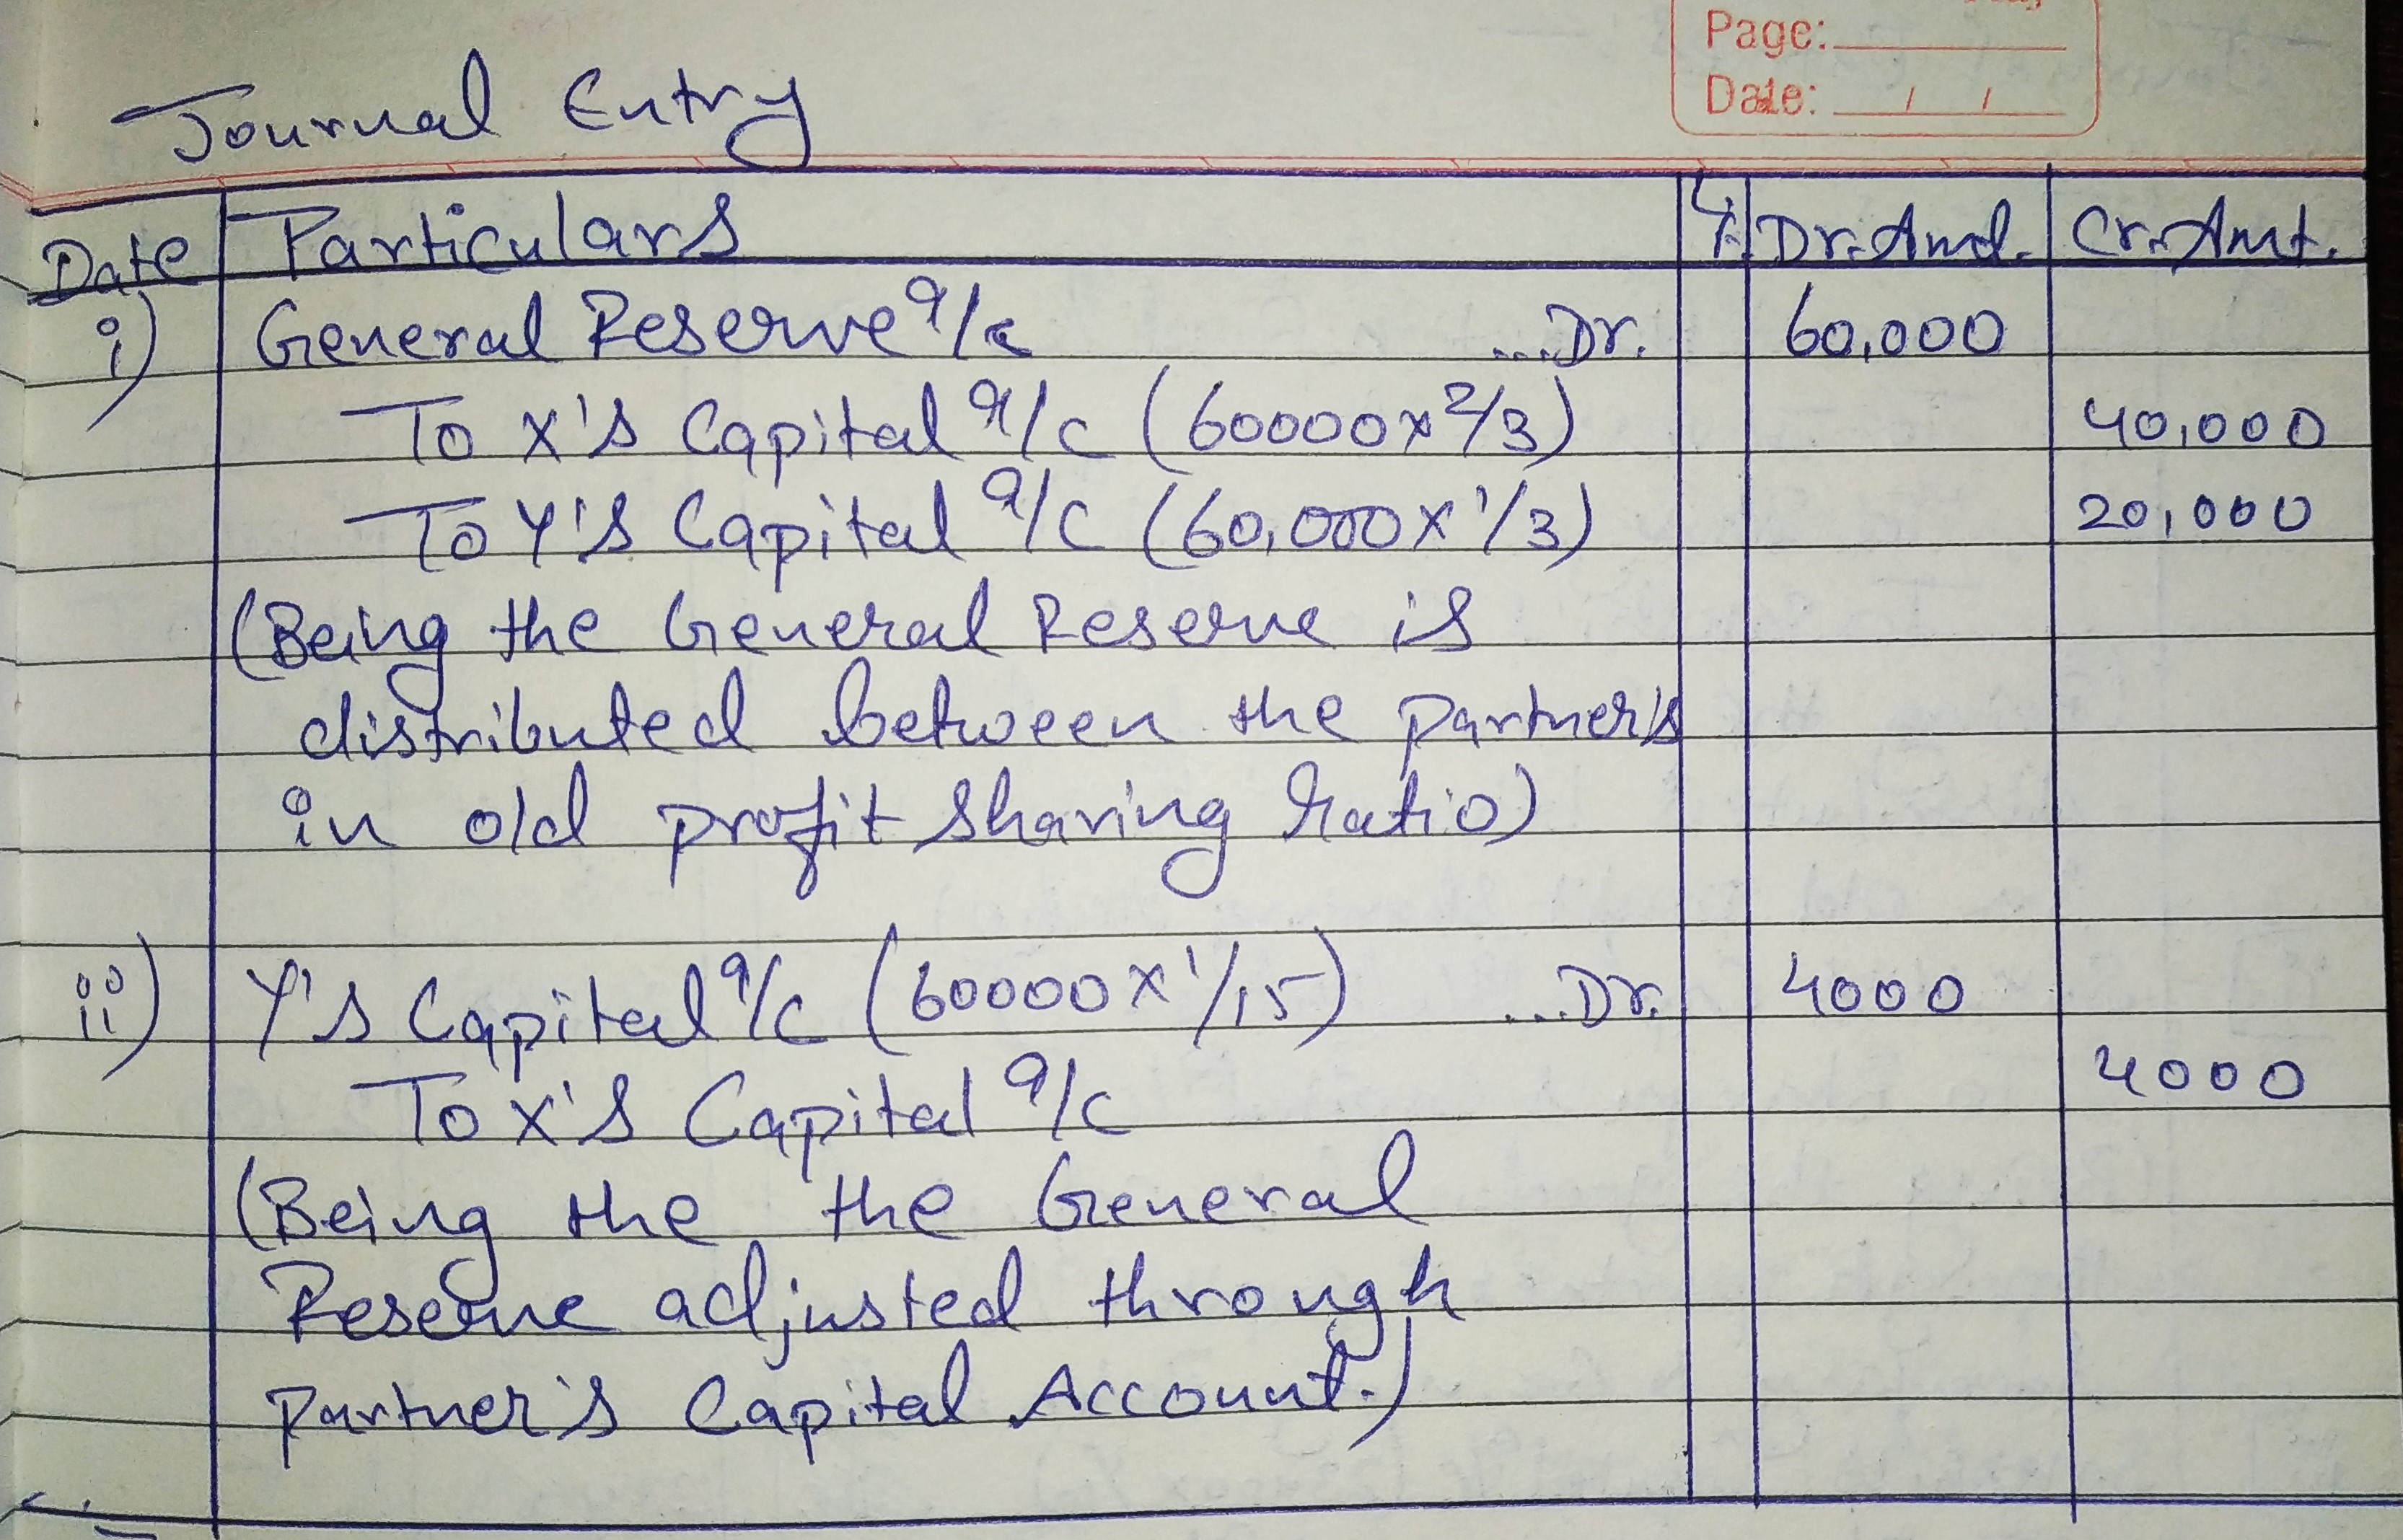 Page:
Date: / /
Journal Entry
Date Particulars L.F. Dr. Amt. Cr. Amt.
i) General Reserve a/c ...Dr. 60,000
To X's Capital a/c (60000x2/3) 40,000
To Y's Capital a/c (60,000x1/3) 20,000
(Being the General Reserve is
distributed between the partner's
in old profit sharing ratio)
ii) Y's Capital a/c (60000x1/15) ...Dr. 4000
To X's Capital a/c 4000
(Being the the General
Reserve adjusted through
partner's Capital Account.)